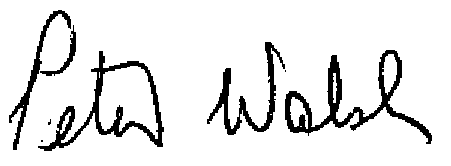 Peter Walsh